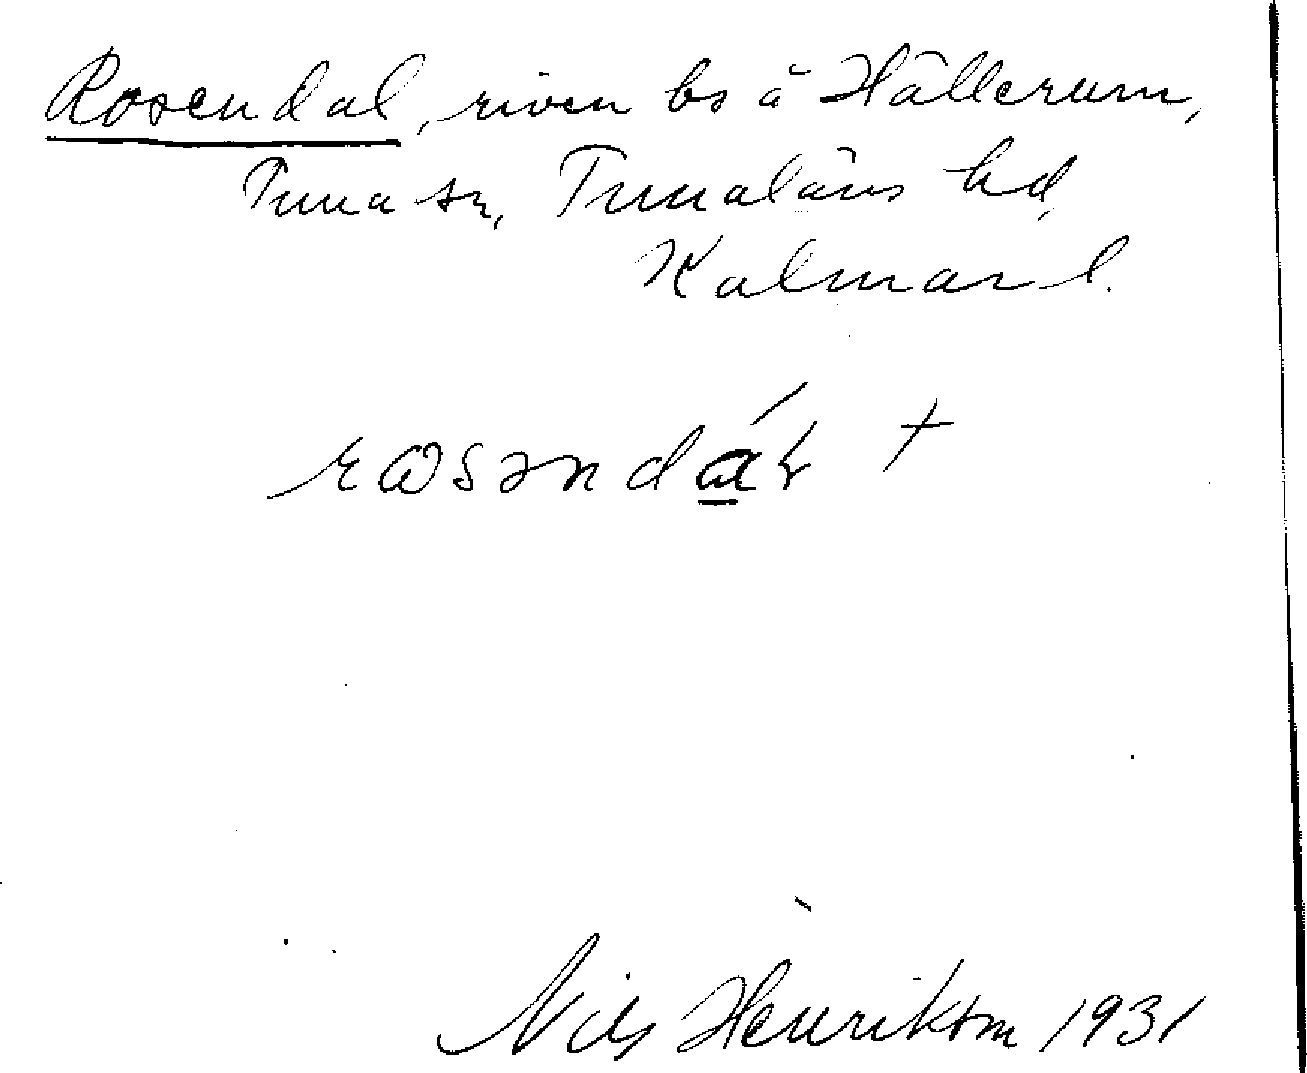 Rosendal, riven bs å Hällerum,
Tuna sn, Tunaläns hd,
Kalmar l.
rωsəndáł +
Nils Henrikson 1931